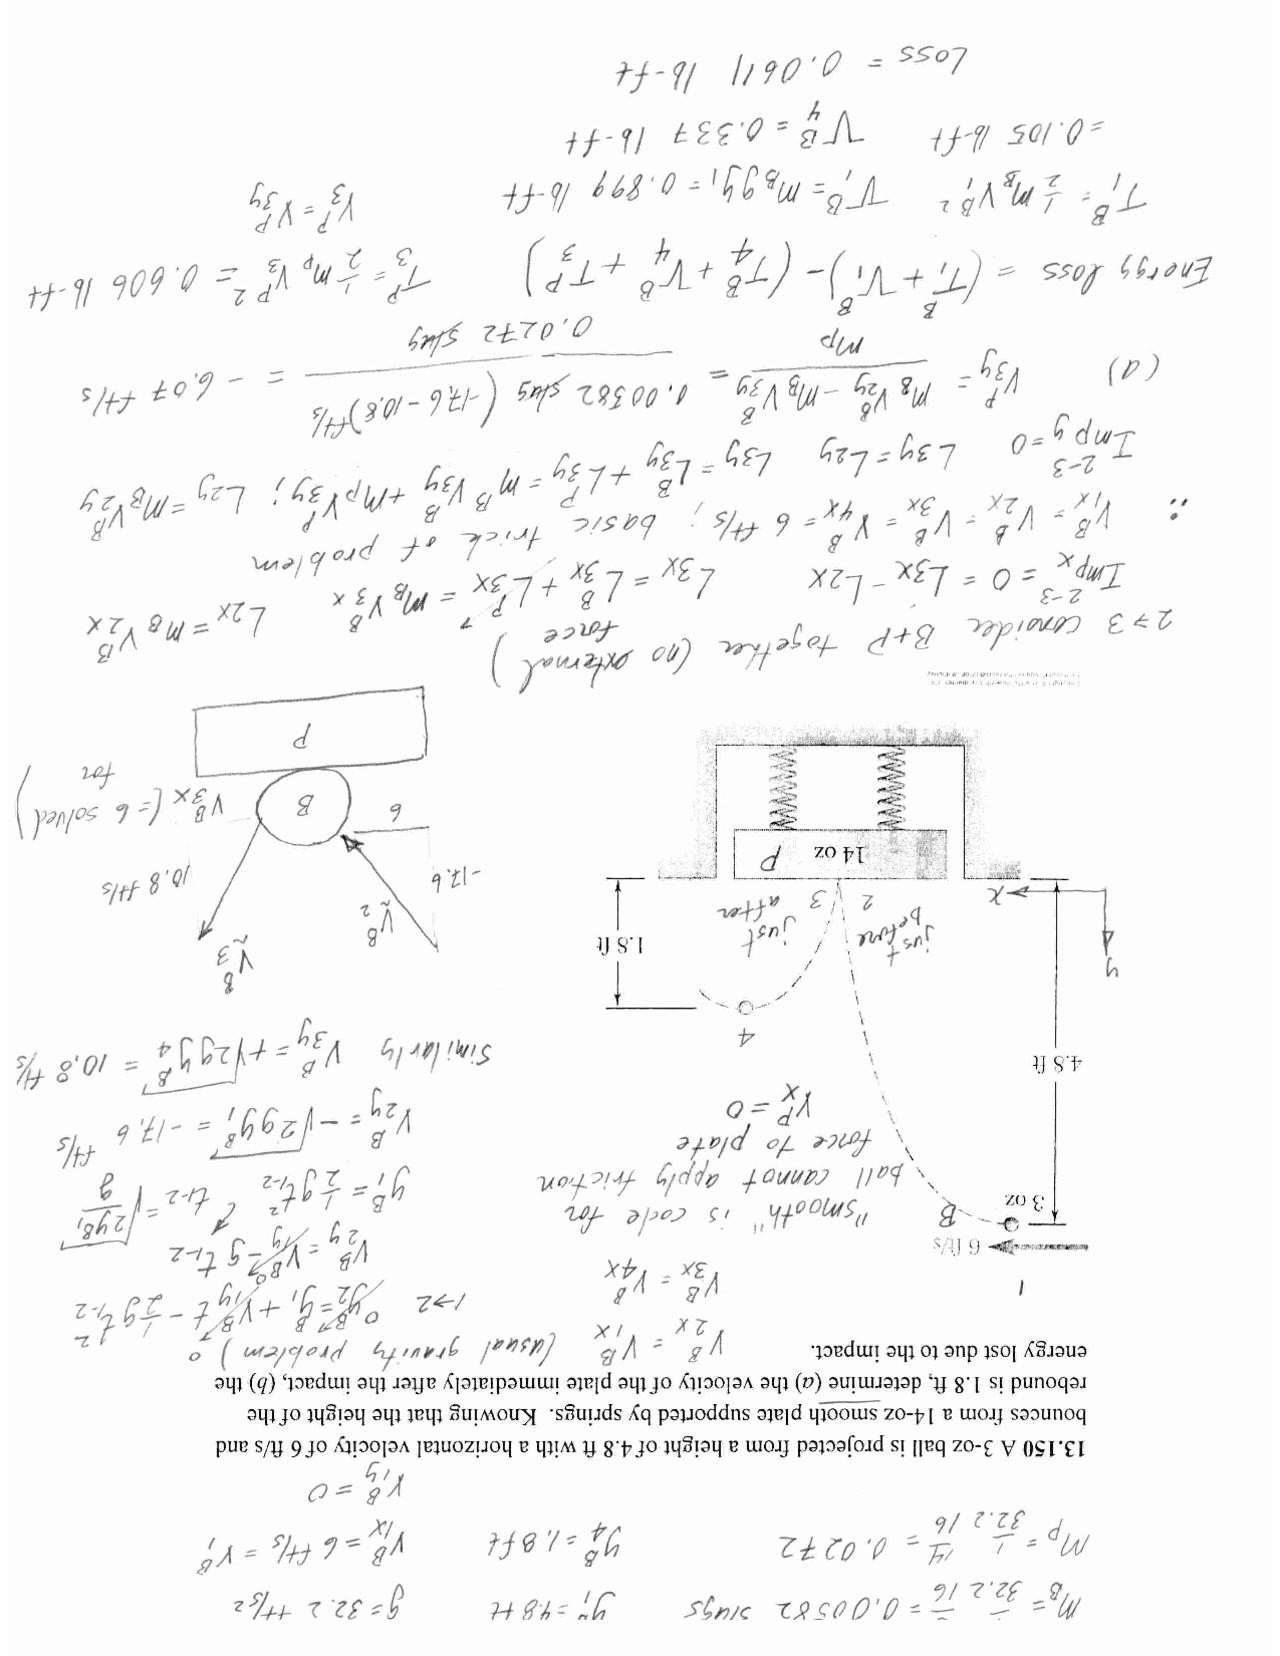 m_B = 1/32.2 3/16 = 0.00582 slugs y_1^B = 4.8 ft g = 32.2 ft/s²
m_P = 1/32.2 14/16 = 0.0272 y_4^B = 1.8 ft V_1x^B = 6 ft/s = V_1^B
V_1y^B = 0
13.150 A 3-oz ball is projected from a height of 4.8 ft with a horizontal velocity of 6 ft/s and
bounces from a 14-oz smooth plate supported by springs. Knowing that the height of the
rebound is 1.8 ft, determine (a) the velocity of the plate immediately after the impact, (b) the
energy lost due to the impact.
V_2x^B = V_1x^B (usual gravity problem)
V_3x^B = V_4x^B
1→2 y_2^B = y_1^B + V_1y^B t - 1/2 g t_1-2²
V_2y^B = V_1y^B - g t_1-2
y_1^B = 1/2 g t_1-2² t_1-2 = √(2y_1^B/g)
V_2y^B = -√(2gy_1^B) = -17.6 ft/s
Similarly V_3y^B = +√(2gy_4^B) = 10.8 ft/s
1
6 ft/s
3 oz
B
"smooth" is code for
ball cannot apply friction
force to plate
V_x^P = 0
4.8 ft
4
1.8 ft
y
x
just before
2
3
just after
14 oz P
V_3^B
V_2^B
-17.6
10.8 ft/s
6
V_3x^B (= 6 solved for)
B
P
2→3 consider B+P together (no external force)
Imp_x^2-3 = 0 = L3x - L2x L3x = L_3x^B + L_3x^P = m_B V_3x^B L2x = m_B V_2x^B
∴ V_1x^B = V_2x^B = V_3x^B = V_4x^B = 6 ft/s; basic trick of problem
Imp_y^2-3 = 0 L3y = L2y L3y = L_3y^B + L_3y^P = m_B V_3y^B + m_P V_3y^P; L2y = m_B V_2y^B
(a) V_3y^P = (m_B V_2y^B - m_B V_3y^B)/m_P = 0.00582 slug (-17.6 - 10.8) ft/s / 0.0272 slug = -6.07 ft/s
Energy loss = (T_1^B + V_1^B) - (T_4^B + V_4^B + T_3^P) T_3^P = 1/2 m_P V_3^P² = 0.606 lb-ft
V_3^P = V_3y^P
T_1^B = 1/2 m_B V_1^B² V_1^B = m_B g y_1 = 0.899 lb-ft
= 0.105 lb-ft V_4^B = 0.337 lb-ft
Loss = 0.0611 lb-ft